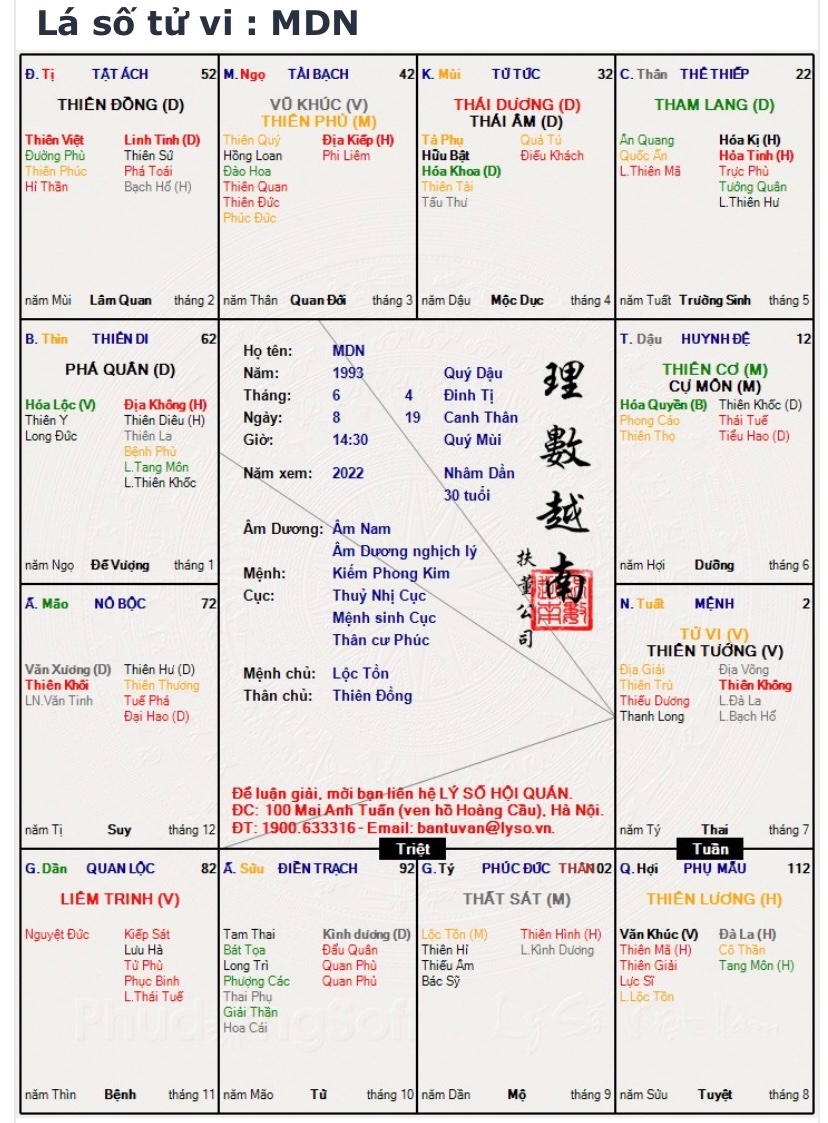 Lá số tử vi : MDN
Đ. Tị TẬT ÁCH 52
THIÊN ĐỒNG (D)
Thiên Việt Linh Tinh (D)
Đường Phù Thiên Sứ
Thiên Phúc Phá Toái
Hỉ Thần Bạch Hổ (H)
năm Mùi Lâm Quan tháng 2
M. Ngọ TÀI BẠCH 42
VŨ KHÚC (V)
THIÊN PHỦ (M)
Thiên Quý Địa Kiếp (H)
Hồng Loan Phi Liêm
Đào Hoa
Thiên Quan
Thiên Đức
Phúc Đức
năm Thân Quan Đới tháng 3
K. Mùi TỬ TỨC 32
THÁI DƯƠNG (D)
THÁI ÂM (D)
Tả Phụ Quả Tú
Hữu Bật Điếu Khách
Hóa Khoa (D)
Thiên Tài
Tấu Thư
năm Dậu Mộc Dục tháng 4
C. Thân THÊ THIẾP 22
THAM LANG (D)
Ân Quang Hóa Kị (H)
Quốc Ấn Hỏa Tinh (H)
L.Thiên Mã Trực Phù
Tướng Quân
L.Thiên Hư
năm Tuất Trường Sinh tháng 5
B. Thìn THIÊN DI 62
PHÁ QUÂN (D)
Hóa Lộc (V) Địa Không (H)
Thiên Y Thiên Diêu (H)
Long Đức Thiên La
Bệnh Phù
L.Tang Môn
L.Thiên Khốc
năm Ngọ Đế Vượng tháng 1
Họ tên: MDN
Năm: 1993 Quý Dậu
Tháng: 6 4 Đinh Tị
Ngày: 8 19 Canh Thân
Giờ: 14:30 Quý Mùi
Năm xem: 2022 Nhâm Dần
30 tuổi
Âm Dương: Âm Nam
Âm Dương nghịch lý
Mệnh: Kiếm Phong Kim
Cục: Thuỷ Nhị Cục
Mệnh sinh Cục
Thân cư Phúc
Mệnh chủ: Lộc Tồn
Thân chủ: Thiên Đồng
理數越南
扶董公司
Để luận giải, mời bạn liên hệ LÝ SỐ HỘI QUÁN.
ĐC: 100 Mai Anh Tuấn (ven hồ Hoàng Cầu), Hà Nội.
ĐT: 1900.633316 - Email: bantuvan@lyso.vn.
T. Dậu HUYNH ĐỆ 12
THIÊN CƠ (M)
CỰ MÔN (M)
Hóa Quyền (B) Thiên Khốc (D)
Phong Cáo Thái Tuế
Thiên Thọ Tiểu Hao (D)
năm Hợi Dưỡng tháng 6
Ấ. Mão NÔ BỘC 72
Văn Xương (D) Thiên Hư (D)
Thiên Khôi Thiên Thương
LN.Văn Tinh Tuế Phá
Đại Hao (D)
năm Tị Suy tháng 12
N. Tuất MỆNH 2
TỬ VI (V)
THIÊN TƯỚNG (V)
Địa Giải Địa Võng
Thiên Trù Thiên Không
Thiếu Dương L.Đà La
Thanh Long L.Bạch Hổ
năm Tý Thai tháng 7
Triệt
Tuần
G. Dần QUAN LỘC 82
LIÊM TRINH (V)
Nguyệt Đức Kiếp Sát
Lưu Hà
Tử Phù
Phục Binh
L.Thái Tuế
năm Thìn Bệnh tháng 11
Ấ. Sửu ĐIỀN TRẠCH 92
Tam Thai Kình dương (D)
Bát Tọa Đẩu Quân
Long Trì Quan Phù
Phượng Các Quan Phủ
Thai Phụ
Giải Thần
Hoa Cái
năm Mão Tử tháng 10
G. Tý PHÚC ĐỨC THÂN 102
THẤT SÁT (M)
Lộc Tồn (M) Thiên Hình (H)
Thiên Hỉ L.Kình Dương
Thiếu Âm
Bác Sỹ
năm Dần Mộ tháng 9
Q. Hợi PHỤ MẪU 112
THIÊN LƯƠNG (H)
Văn Khúc (V) Đà La (H)
Thiên Mã (H) Cô Thần
Thiên Giải Tang Môn (H)
Lực Sĩ
L.Lộc Tồn
năm Sửu Tuyệt tháng 8